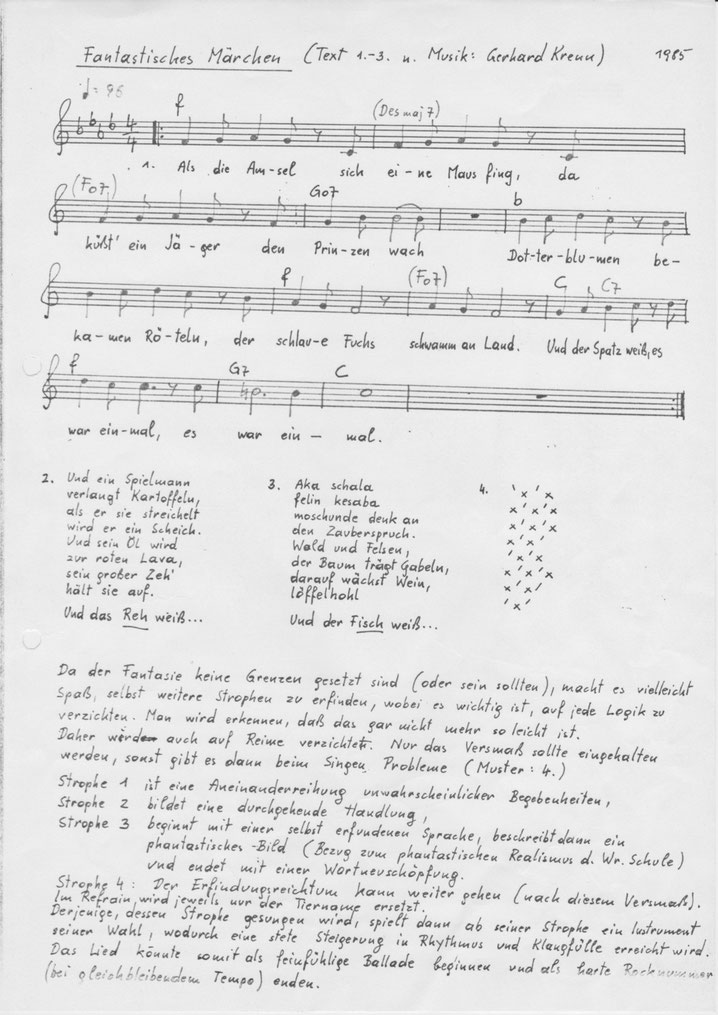 Fantastisches Märchen (Text 1.-3. u. Musik: Gerhard Krenn) 1985
♩= 96
f (Des maj7)
4/4
1. Als die Am-sel sich ei-ne Maus fing, da
(Fo7) Go7 b
küßt' ein Jä-ger den Prin-zen wach Dot-ter-blu-men be-
f (Fo7) G C7
ka-men Rö-teln, der schlau-e Fuchs schwamm an Land. Und der Spatz weiß, es
f G7 C
war ein-mal, es war ein-mal.
2. Und ein Spielmann
verlangt Kartoffeln,
als er sie streichelt
wird er ein Scheich.
Und sein Öl wird
zur roten Lava,
sein großer Zeh'
hält sie auf.
Und das Reh weiß...
3. Aka schala
felin kesaba
moschunde denk an
den Zauberspruch.
Wald und Felsen,
der Baum trägt Gabeln,
darauf wächst Wein,
löffelhohl
Und der Fisch weiß...
4.
' x ' x
x ' x ' x
x ' x ' x
x ' x ' x
' x ' x
x ' x ' x
x ' x ' x
' x '
Da der Fantasie keine Grenzen gesetzt sind (oder sein sollten), macht es vielleicht
Spaß, selbst weitere Strophen zu erfinden, wobei es wichtig ist, auf jede Logik zu
verzichten. Man wird erkennen, daß das gar nicht mehr so leicht ist.
Daher auch auf Reime verzichtet. Nur das Versmaß sollte eingehalten
werden, sonst gibt es dann beim Singen Probleme (Muster: 4.)
Strophe 1 ist eine Aneinanderreihung unwahrscheinlicher Begebenheiten,
Strophe 2 bildet eine durchgehende Handlung,
Strophe 3 beginnt mit einer selbst erfundenen Sprache, beschreibt dann ein
phantastisches Bild (Bezug zum phantastischen Realismus d. Wr. Schule)
und endet mit einer Wortneuschöpfung.
Strophe 4: Der Erfindungsreichtum kann weiter gehen (nach diesem Versmaß).
Im Refrain wird jeweils nur der Tiername ersetzt.
Derjenige, dessen Strophe gesungen wird, spielt dann ab seiner Strophe ein Instrument
seiner Wahl, wodurch eine stete Steigerung in Rhythmus und Klangfülle erreicht wird.
Das Lied könnte somit als feinfühlige Ballade beginnen und als harte Rocknummer
(bei gleichbleibendem Tempo) enden.